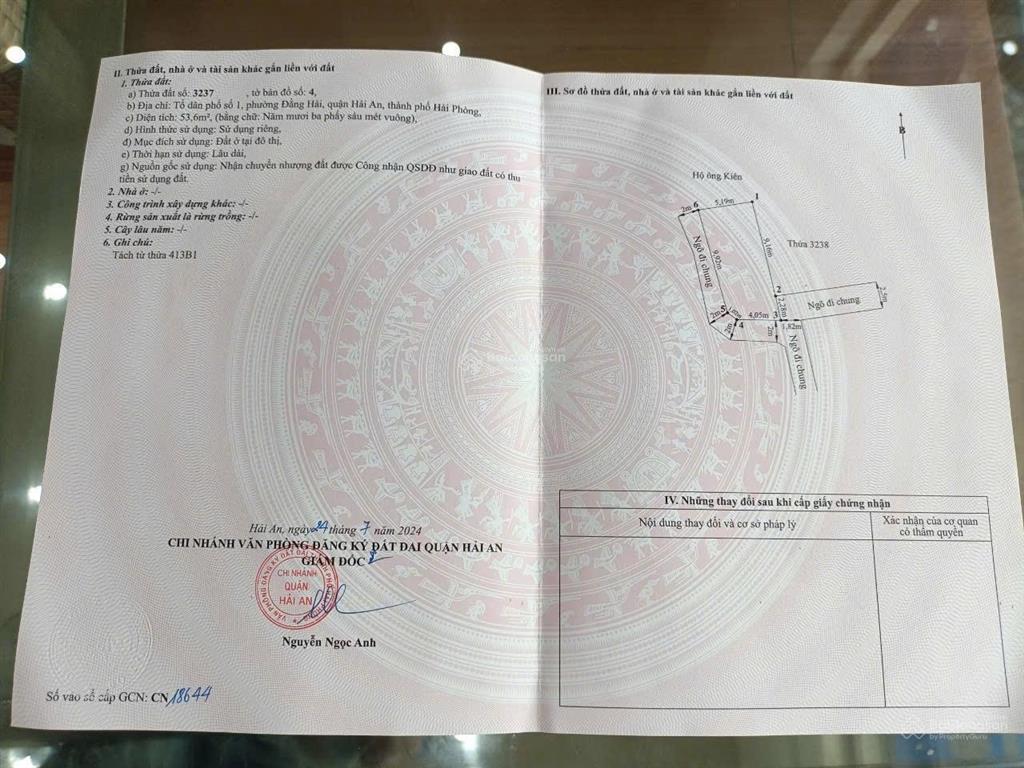 II. Thửa đất, nhà ở và tài sản khác gắn liền với đất
1. Thửa đất:
a) Thửa đất số: 3237 , tờ bản đồ số: 4,
b) Địa chỉ: Tổ dân phố số 1, phường Đằng Hải, quận Hải An, thành phố Hải Phòng,
c) Diện tích: 53,6m², (bằng chữ: Năm mươi ba phẩy sáu mét vuông),
d) Hình thức sử dụng: Sử dụng riêng,
đ) Mục đích sử dụng: Đất ở tại đô thị,
e) Thời hạn sử dụng: Lâu dài,
g) Nguồn gốc sử dụng: Nhận chuyển nhượng đất được Công nhận QSDĐ như giao đất có thu
tiền sử dụng đất.
2. Nhà ở: -/-
3. Công trình xây dựng khác: -/-
4. Rừng sản xuất là rừng trồng: -/-
5. Cây lâu năm: -/-
6. Ghi chú:
Tách từ thửa 413B1
Hải An, ngày 24 tháng 7 năm 2024
CHI NHÁNH VĂN PHÒNG ĐĂNG KÝ ĐẤT ĐAI QUẬN HẢI AN
GIÁM ĐỐC
CHI NHÁNH
QUẬN
HẢI AN
Nguyễn Ngọc Anh
Số vào sổ cấp GCN: CN 18644
III. Sơ đồ thửa đất, nhà ở và tài sản khác gắn liền với đất
B
Hộ ông Kiên
2m 6 5,19m 1
Ngõ đi chung
9,92m
9,16m
Thửa 3238
2
2,28m
Ngõ đi chung
2,5m
2m 5
4 4,05m 3
1,82m
2m
2m
Ngõ đi chung
IV. Những thay đổi sau khi cấp giấy chứng nhận
Nội dung thay đổi và cơ sở pháp lý
Xác nhận của cơ quan
có thẩm quyền
Batdongsan
by PropertyGuru